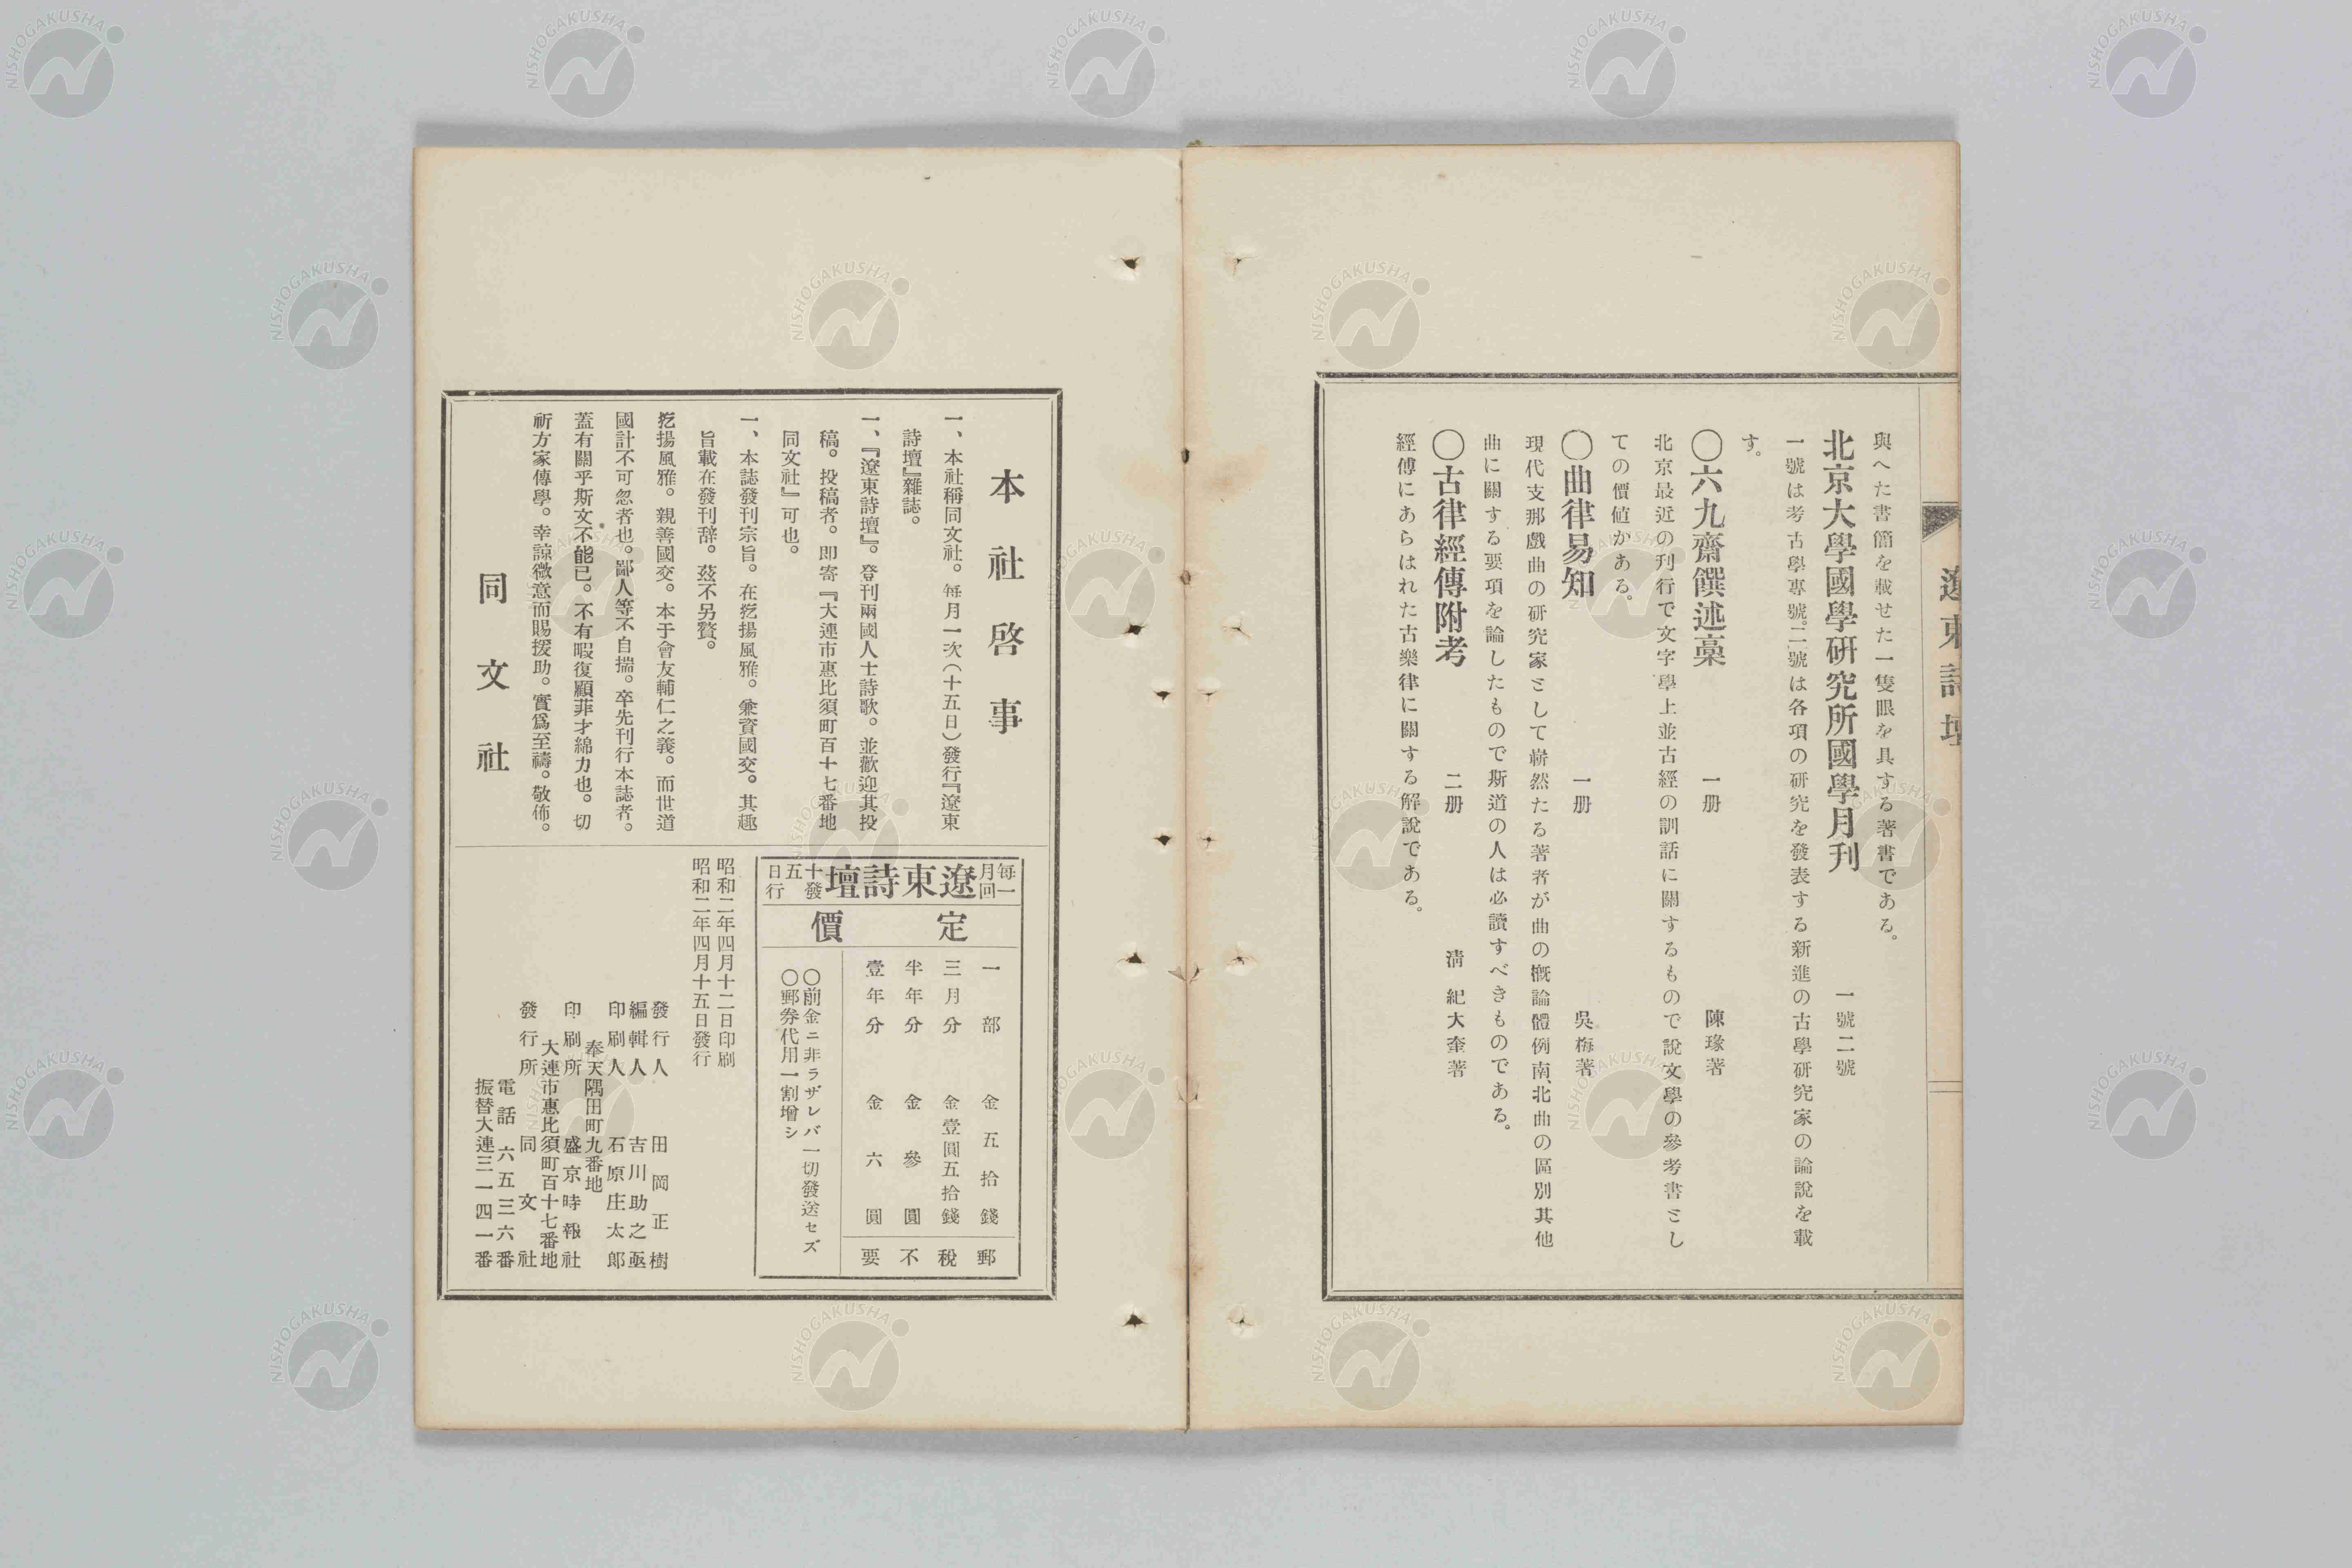 遼東詩壇
與へた書簡を載せた一隻眼を具する著書である。
北京大學國學研究所國學月刊　一號二號
一號は考古學專號。二號は各項の研究を發表する新進の古學研究家の論說を載
す。
〇六九齋饌述稾　一册　陳瑑著
北京最近の刊行で文字學上並古經の訓話に關するもので說文學の參考書とし
ての價値がある。
〇曲律易知　一册　吳梅著
現代支那戲曲の研究家として嶄然たる著者が曲の槪論體例南、北曲の區別其他
曲に關する要項を論したもので斯道の人は必讀すべきものである。
〇古律經傳附考　二册　淸　紀大奎著
經傳にあらはれた古樂律に關する解說である。
本社啓事
一、本社稱同文社。每月一次（十五日）發行『遼東
詩壇』雜誌。
一、『遼東詩壇』。登刊兩國人士詩歌。並歡迎其投
稿。投稿者。卽寄『大連市惠比須町百十七番地
同文社』可也。
一、本誌發刊宗旨。在扢揚風雅。兼資國交。其趣
旨載在發刊辞。玆不另贅。
扢揚風雅。親善國交。本于會友輔仁之義。而世道
國計不可忽者也。鄙人等不自揣。卒先刊行本誌者。
蓋有關乎斯文不能已。不有暇復顧菲才綿力也。切
祈方家傳學。幸諒微意而賜援助。實爲至禱。敬佈。
同文社
每月一回　遼東詩壇　十五日發行
定價
一部　金五拾錢　郵
三月分　金壹圓五拾錢　稅
半年分　金參圓　不
壹年分　金六圓　要
〇前金ニ非ラザレバ一切發送セズ
〇郵券代用一割增シ
昭和二年四月十二日印刷
昭和二年四月十五日發行
發行人　田岡正樹
編輯人　吉川助之亟
印刷人　石原庄太郞
奉天隅田町九番地
印刷所　盛京時報社
大連市惠比須町百十七番地
發行所　同文社
電話六五三六番
振替大連三一四一番
NISHOGAKUSHA